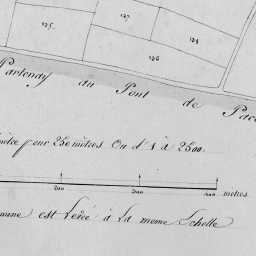 125.
127
128
126
Partenay au Pont de Pacé
mètre pour 250 mètres Ou d' 1 à 2500.
200 mètres
mune est Levée à La meme Echelle